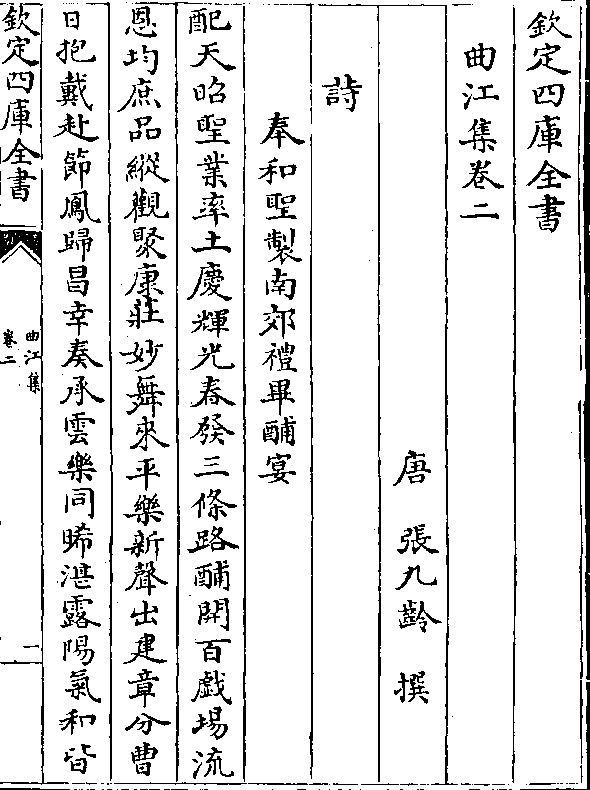 欽定四庫全書
曲江集卷二
唐 張九齡 撰
詩
奉和聖製南郊禮畢酺宴
配天昭聖業率土慶輝光春發三條路酺開百戲場流
恩均庶品縱觀聚康莊妙舞來平樂新聲出建章分曹
日抱戴赴節鳳歸昌幸奏承雲樂同晞湛露陽氣和皆
欽定四庫全書
曲江集
卷二
一